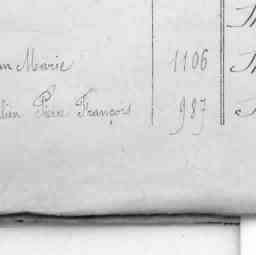 an Marie 1106
lien Pierre François 987